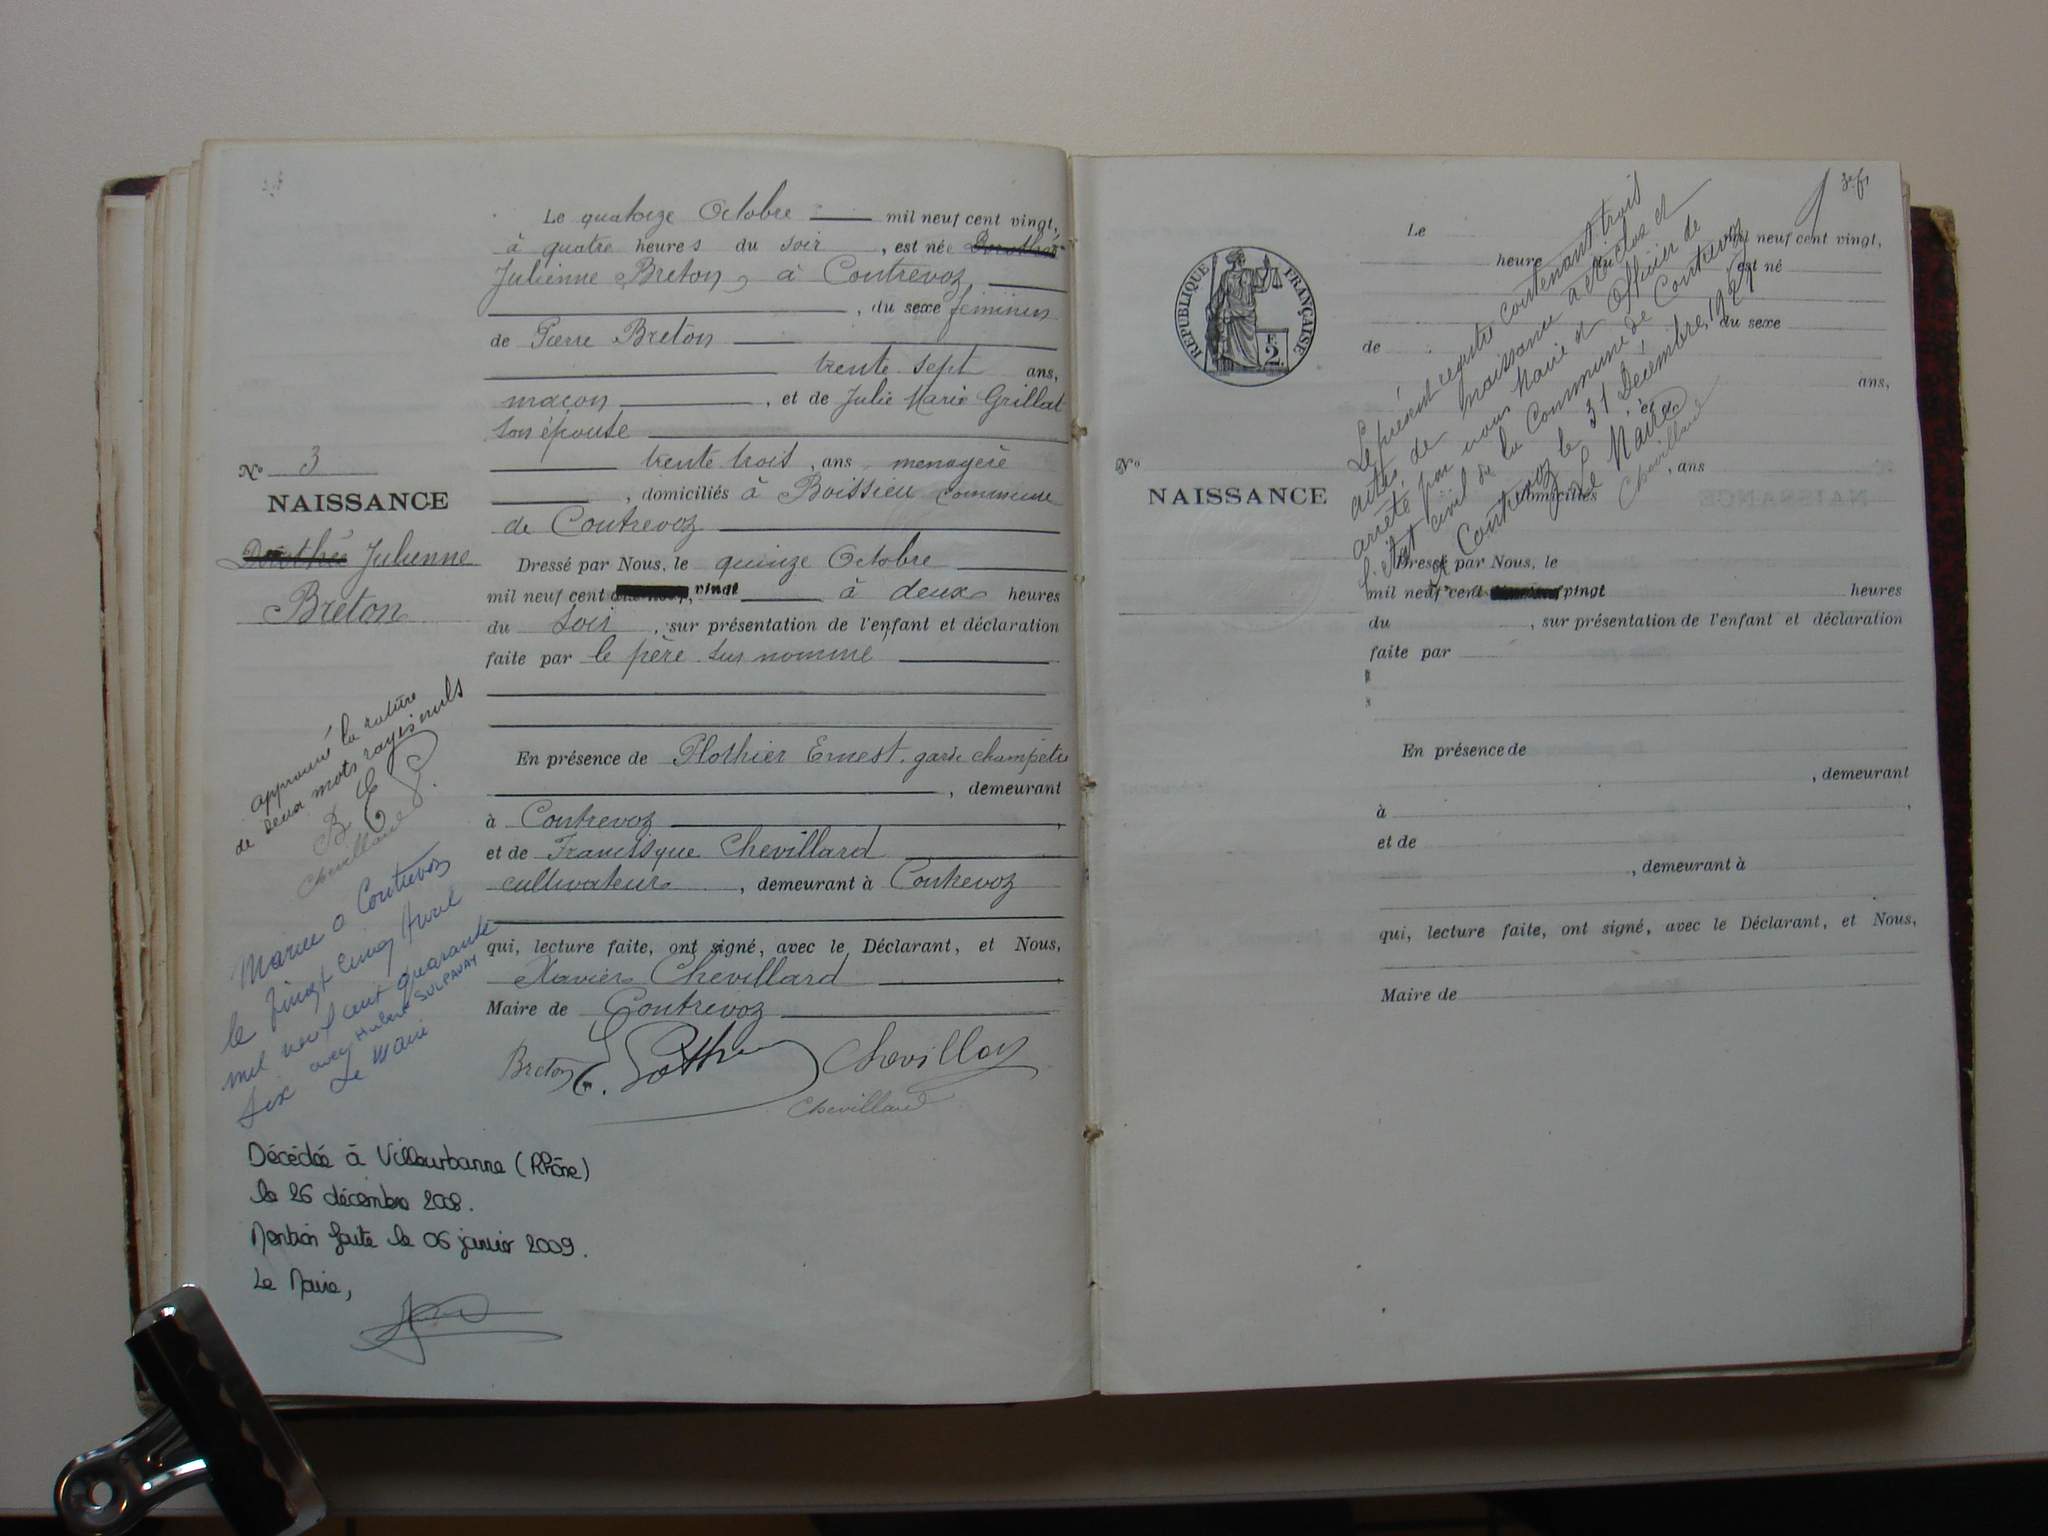 Le quatorze Octobre mil neuf cent vingt,
à quatre heures du soir, est née Dorothée
Julienne Breton, à Contrevoz,
, du sexe féminin
de Pierre Breton
trente sept ans,
maçon, et de Julie Marie Grillat
son épouse
trente trois, ans menagère
, domiciliés à Boissieu commune
de Contrevoz
Dressé par Nous, le quinze Octobre
mil neuf cent vingt à deux heures
du soir, sur présentation de l'enfant et déclaration
faite par le père sus nommé
En présence de Plothier Ernest, garde champêtre
, demeurant
à Contrevoz,
et de Francisque Chevillard
cultivateur, demeurant à Contrevoz
qui, lecture faite, ont signé, avec le Déclarant, et Nous,
Xavier Chevillard
Maire de Contrevoz
Breton Chevillard
Chevillard
No 3
NAISSANCE
Dorothée Julienne
Breton
approuvé la rature
de deux mots rayés nuls
B
Chevillard
Mariée à Contrevoz
le Vingt Cinq Avril
mil neuf cent quarante
six avec Hubert SULPAVAY
Le Maire
Décédée à Villeurbanne (Rhône)
le 26 décembre 2008.
Mention faite le 06 janvier 2009.
Le Maire,
RÉPUBLIQUE FRANÇAISE
2F
Le présent registre contenant trois
actes de naissance a été clos et
arrêté par nous Maire et Officier de
l'état civil de la Commune de Contrevoz
A Contrevoz le 31 Décembre 192
Le Maire
Chevillard
Le mil neuf cent vingt,
heure du, est né
, du sexe
de
ans,
et de
No
, ans
NAISSANCE
domiciliés
Dressé par Nous, le
mil neuf cent vingt heures
du, sur présentation de l'enfant et déclaration
faite par
En présence de
, demeurant
à,
et de
, demeurant à
qui, lecture faite, ont signé, avec le Déclarant, et Nous,
Maire de